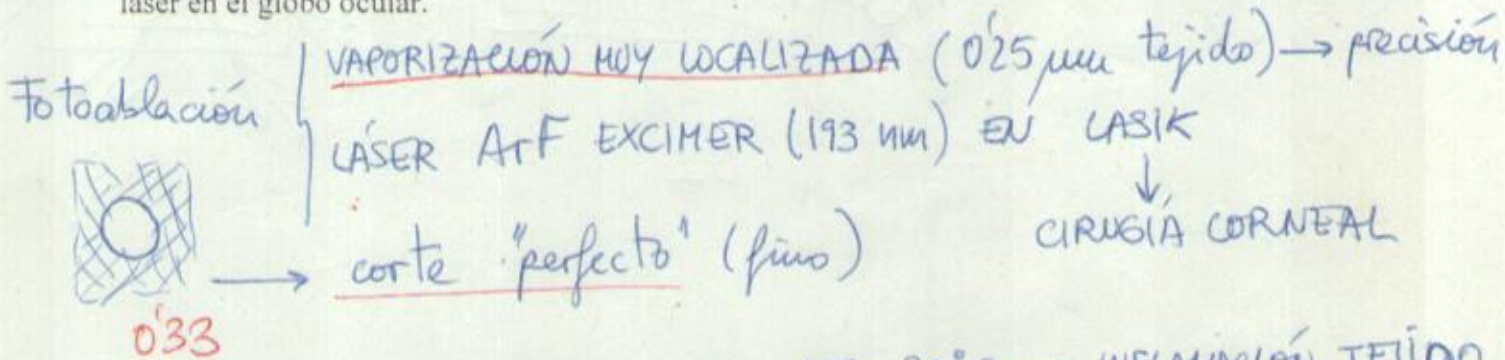 láser en el globo ocular.
Fotoablación
VAPORIZACIÓN MUY LOCALIZADA (0'25 µm tejido) → precisión
LÁSER ArF EXCIMER (193 nm) EN LASIK
↓
CIRUGÍA CORNEAL
→ corte "perfecto" (fino)
0'33
INFLAMACIÓN TEJIDO